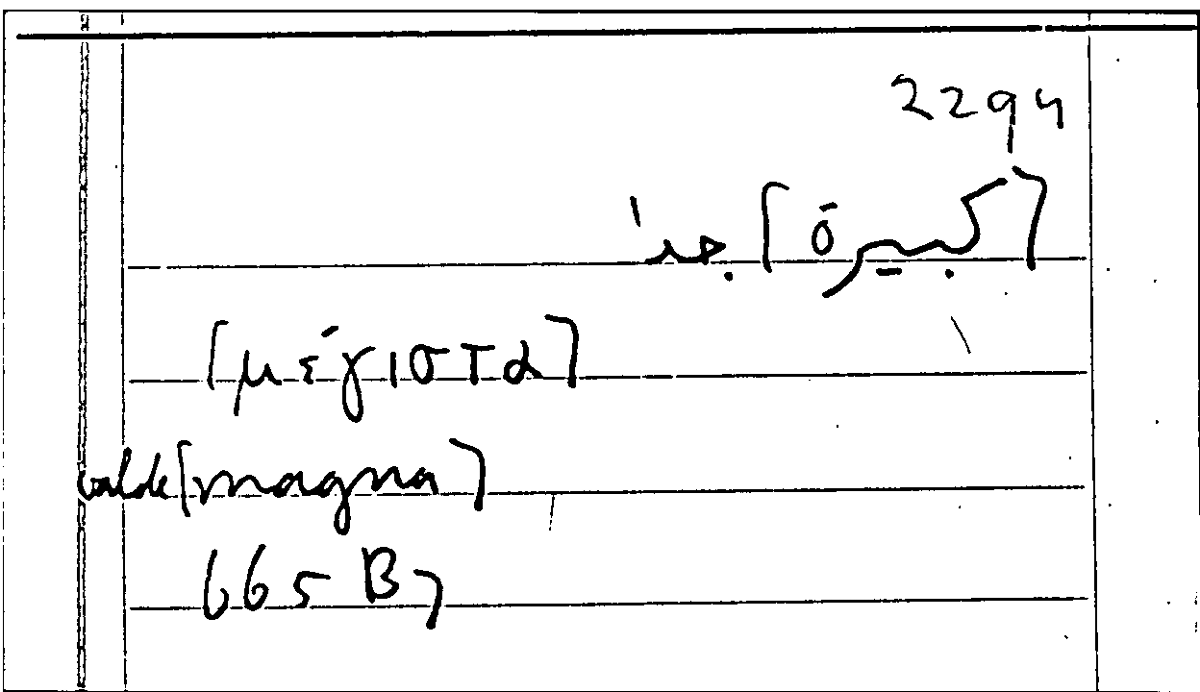 2294
[كبيرة] جدًا
[μέγιστα]
valde [magna]
665 B7